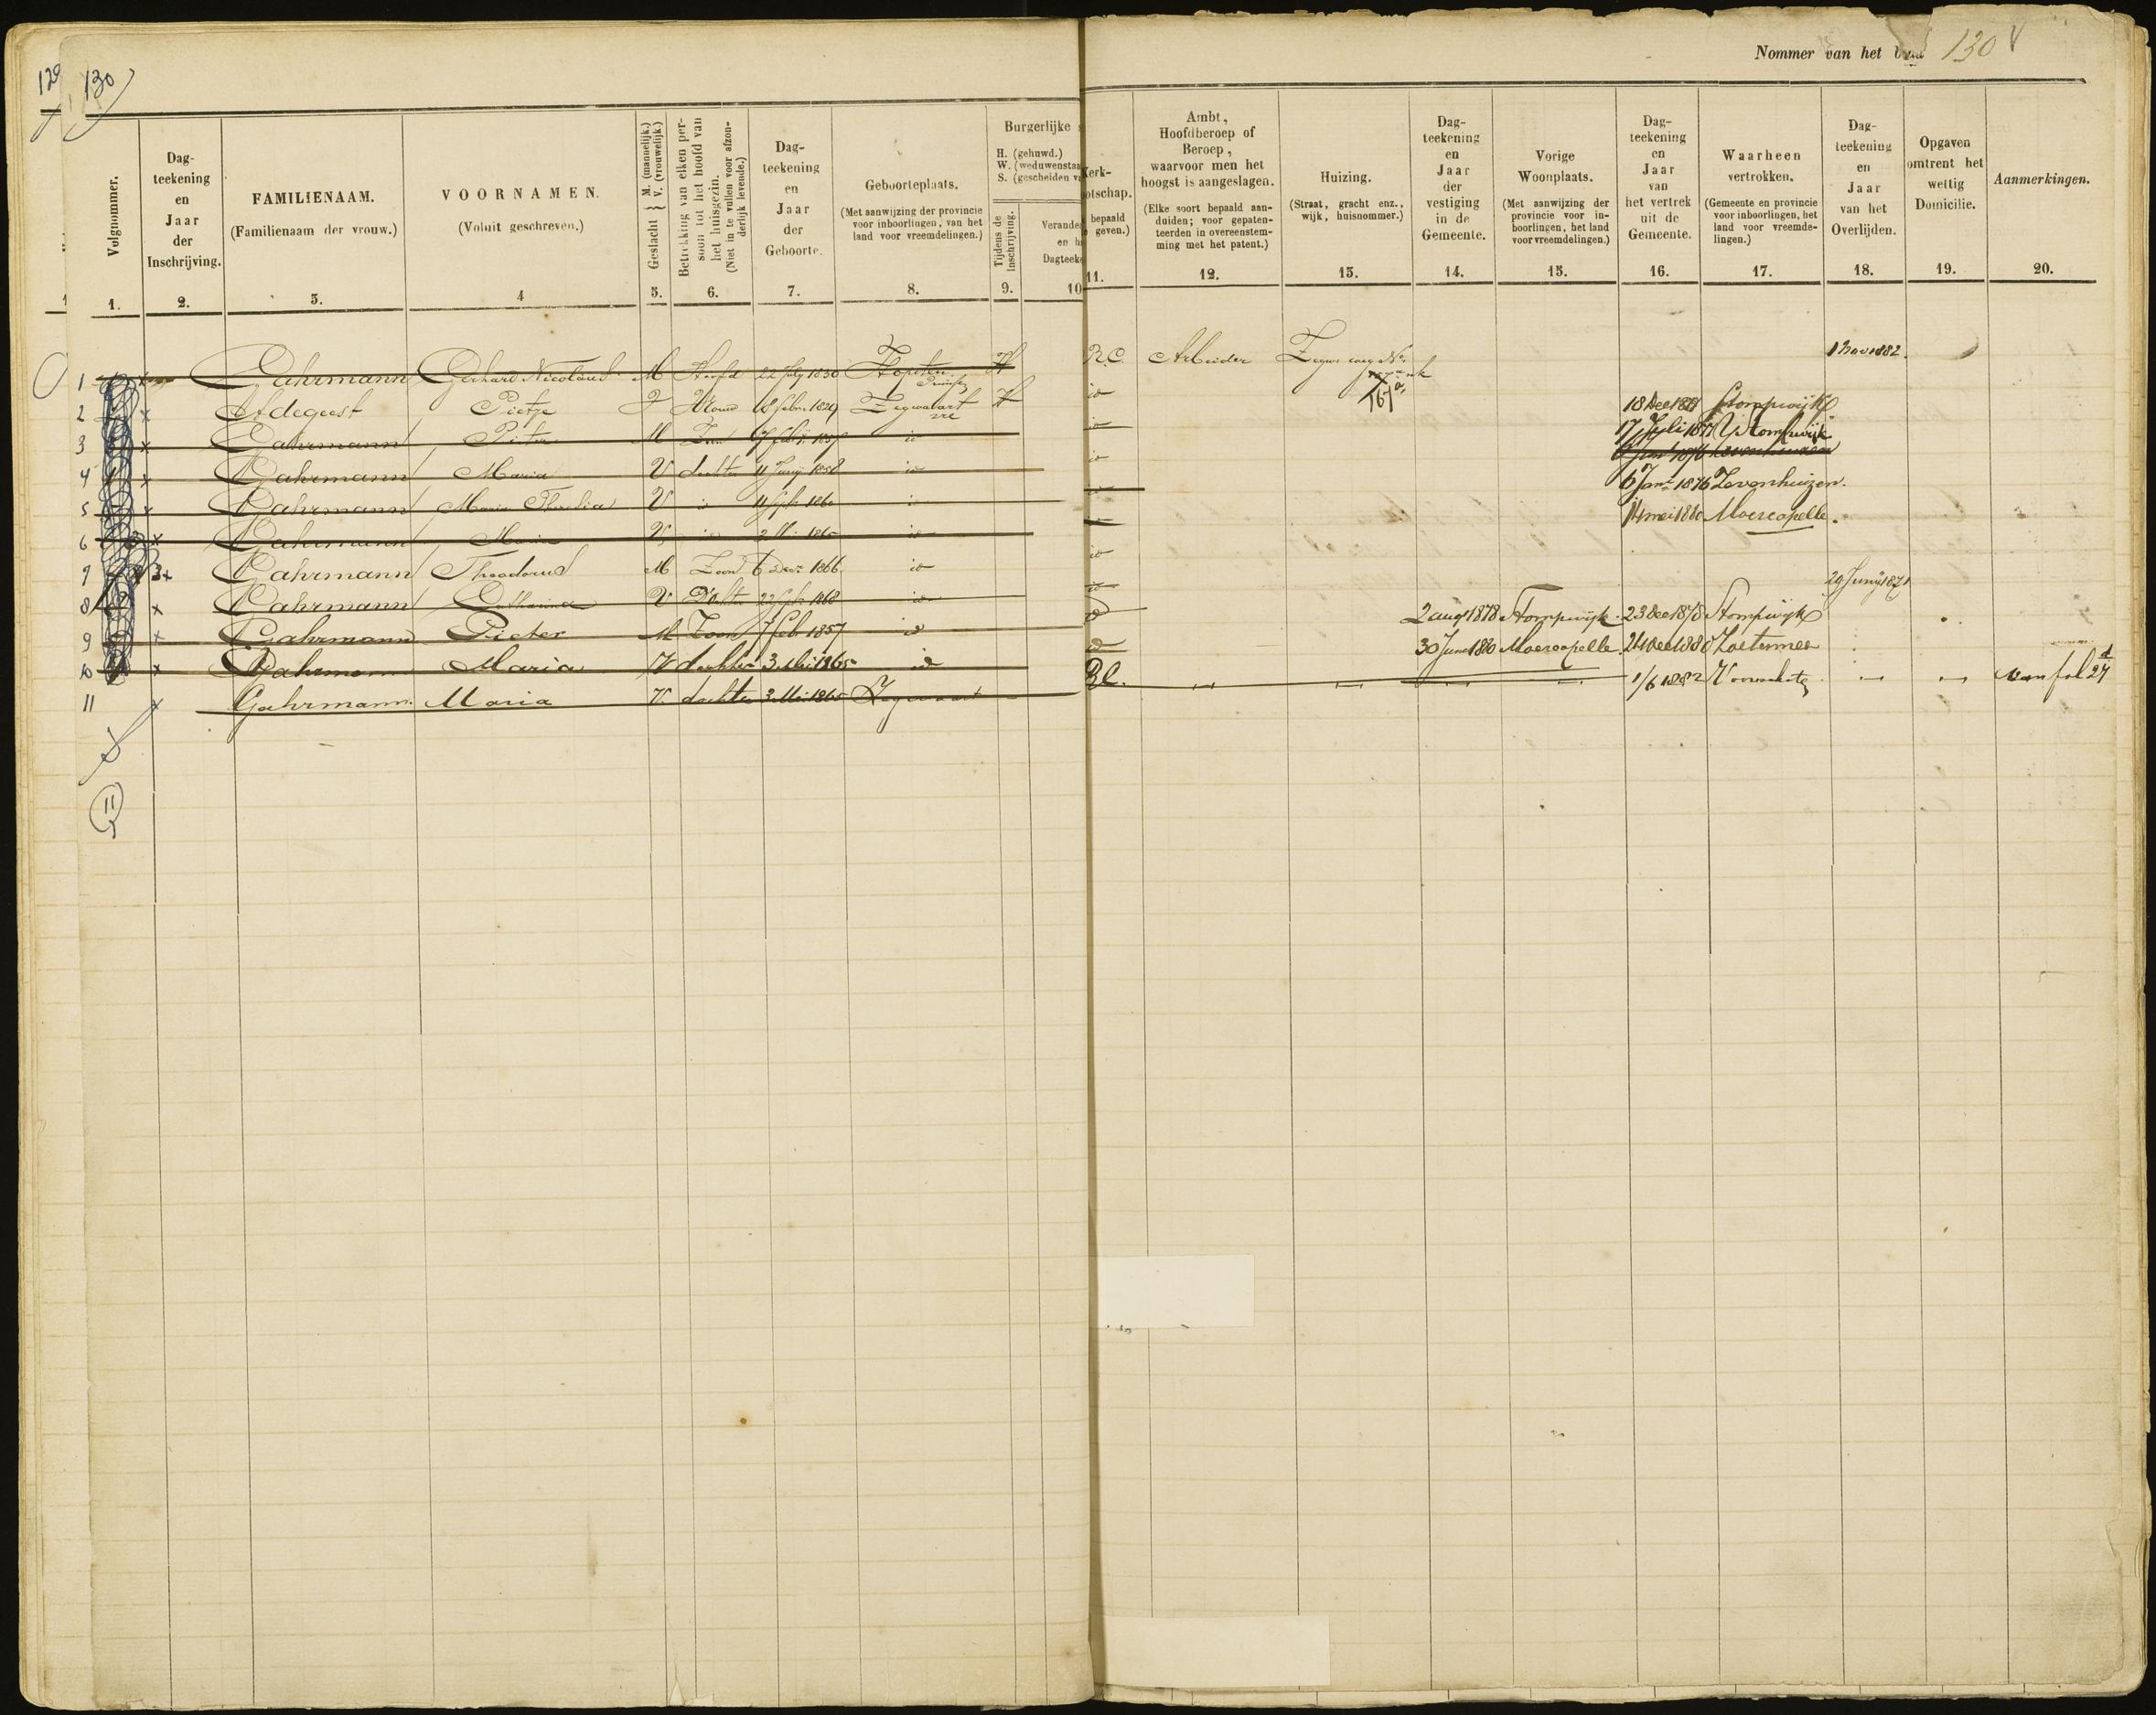 129 130
Nommer van het blad 130
Volgnommer.
1.
Dag-
teekening
en
Jaar
der
Inschrijving.
2.
FAMILIENAAM.
(Familienaam der vrouw.)
3.
VOORNAMEN.
(Voluit geschreven.)
4
Geslacht } M. (mannelijk.) V. (vrouwelijk.)
5.
Betrekking van elken per-
soon tot het hoofd van
het huisgezin.
(Niet in te vullen voor afzon-
derlijk levende.)
6.
Dag-
teekening
en
Jaar
der
Geboorte.
7.
Geboorteplaats.
(Met aanwijzing der provincie
voor inboorlingen, van het
land voor vreemdelingen.)
8.
Burgerlijke
H. (gehuwd.)
W. (weduwenstaa
S. (gescheiden v
Tijdens de
Inschrijving.
9.
Verande
en h
Dagteeke
10
Kerk-
otschap.
bepaald
geven.)
11.
Ambt,
Hoofdberoep of
Beroep,
waarvoor men het
hoogst is aangeslagen.
(Elke soort bepaald aan-
duiden; voor gepaten-
teerden in overeenstem-
ming met het patent.)
12.
Huizing.
(Straat, gracht enz.,
wijk, huisnommer.)
13.
Dag-
teekening
en
Jaar
der
vestiging
in de
Gemeente.
14.
Vorige
Woonplaats.
(Met aanwijzing der
provincie voor in-
boorlingen, het land
voor vreemdelingen.)
15.
Dag-
teekening
en
Jaar
van
het vertrek
uit de
Gemeente.
16.
Waarheen
vertrokken.
(Gemeente en provincie
voor inboorlingen, het
land voor vreemde-
lingen.)
17.
Dag-
teekening
en
Jaar
van het
Overlijden.
18.
Opgaven
omtrent het
wettig
Domicilie.
19.
Aanmerkingen.
20.
1 Gahrmann Gerhard Nicolaus M Hoofd 22 July 1830 Hopsten Pruissen H R.C. Arbeider 167a 1 Nov 1882
2 Afdegeest Pietje V Vrouw 18 Febr 1829 Zegwaart H id 18 Dec Stompwijk
3 Gahrmann Pieter M Zoon 7 Feb 1857 id id 17 Juli Stompwijk
4 Gahrmann Maria V dochter 11 Junij 1858 id id 6 Jan 1876 Zevenhuizen
5 Gahrmann Maria V id 11 Sept 1860 id id 6 Jan 1876 Zevenhuizen.
6 Gahrmann Maria V id 3 Mei 1865 id id 14 mei 1880 Moercapelle.
7 Gahrmann Theodorus M Zoon 6 Decr 1866 id id
8 Gahrmann Catharina V Dochter 22 Sept 1868 id id 29 Junij 1871
9 Gahrmann Pieter M Zoon 7 Feb 1857 id id 2 aug 1878 Stompwijk 23 Dec 1878 Stompwijk
10 Gahrmann Maria V dochter 3 Mei 1865 id id 30 Juni 1880 Moercapelle 24 Dec 1880 Zoetermeer
11 Gahrmann Maria V. dochter 3 Mei 1865 Zegwaart R.C. 1/6 1882 Voorschoten van fol 27
11